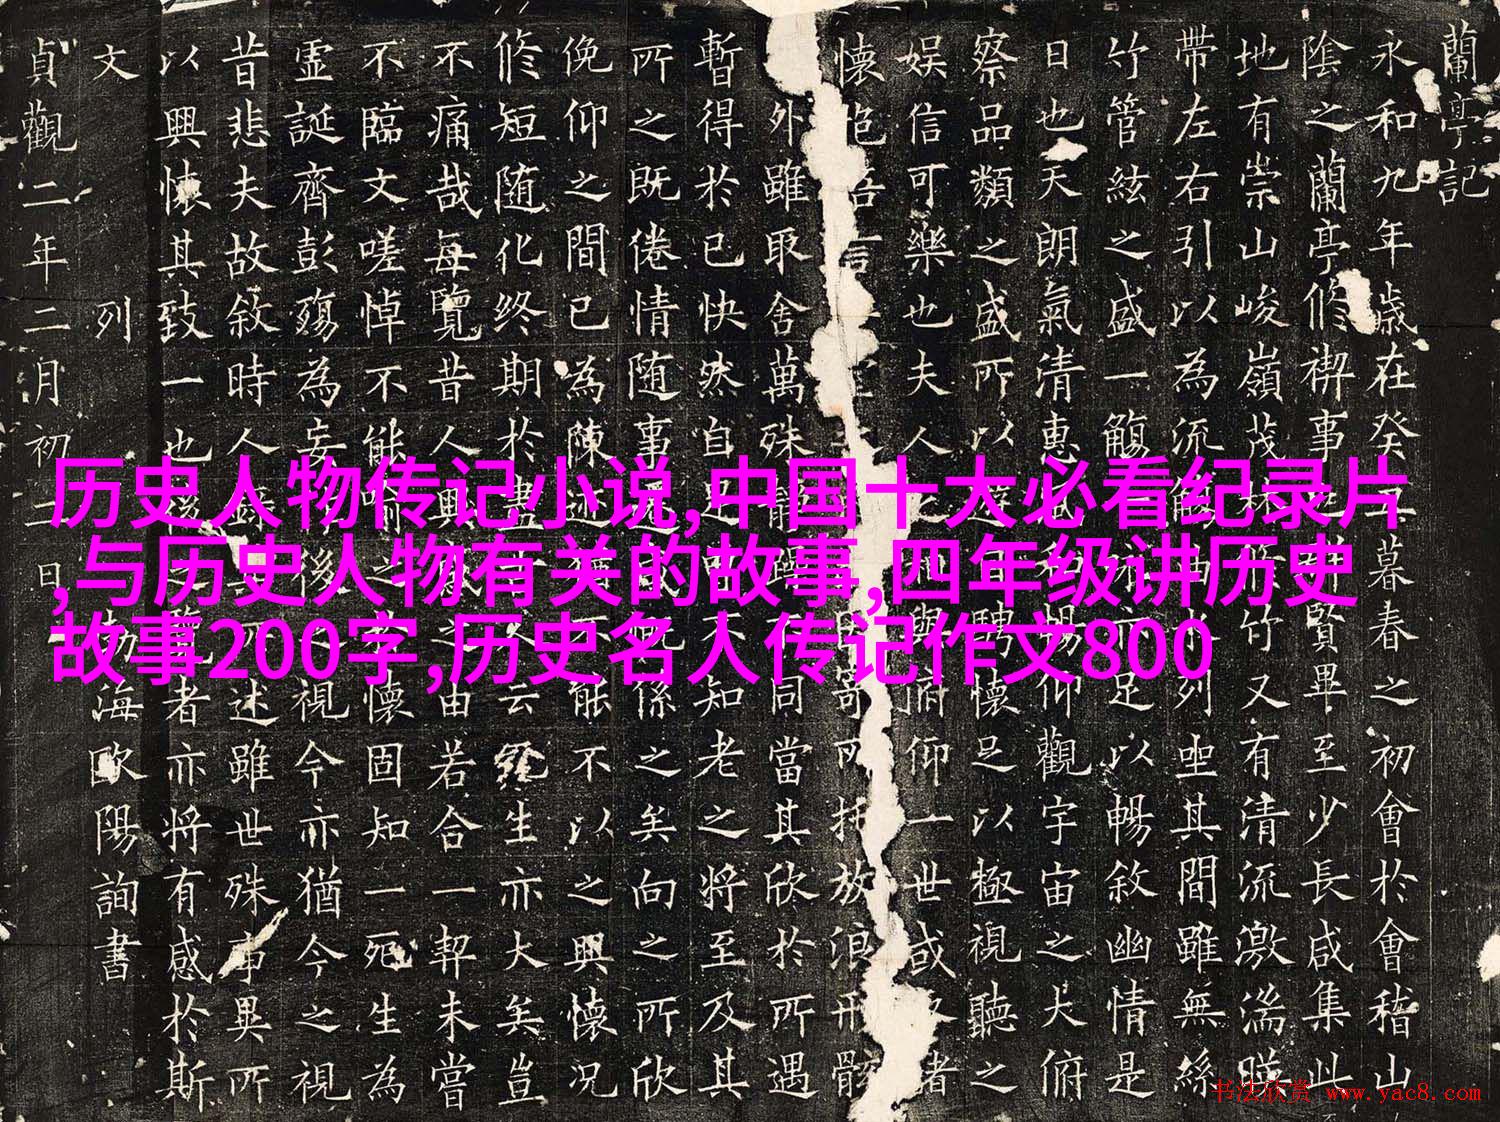 蘭亭記
永和九年歲在癸暮春之初會於會稽山
陰之蘭亭修禊事賢畢至少長咸集此
地有崇山峻嶺茂林竹又有清流激湍暎
帶左右引以為流觴列坐其間雖無絲
竹管絃之盛一觴足以暢敘幽情是
日也天朗氣清惠暢仰觀宇宙之大俯
察品類之盛所以遊騁懷足以極視聽之
娛信可樂也夫人之與俯仰一世或諸
懷抱言寄所託放浪形骸
外雖取舍萬殊靜同當其欣於所遇
暫得於已快然自不知老之將至及其
所之既倦情随事係之矣向之所欣
俛仰之間已為陳迹能不以之興懷況
修短随化终期於盡云死生亦大矣豈
不痛哉每覽昔人興之由若合一契未嘗
不臨文嗟悼不能喻懷固知一死生為
虛誕齊彭殤為妄後視今亦猶今之視
昔悲夫故敘時人述雖世殊事異所
以興懷其致一也後覽者亦將有感於斯
文 列 海歐陽詢書
貞觀二年二月初二日
历史人物传记小说,中国十大必看纪录片
,与历史人物有关的故事,四年级讲历史
故事200字,历史名人传记作文800
书法欣赏 www.yac8.com